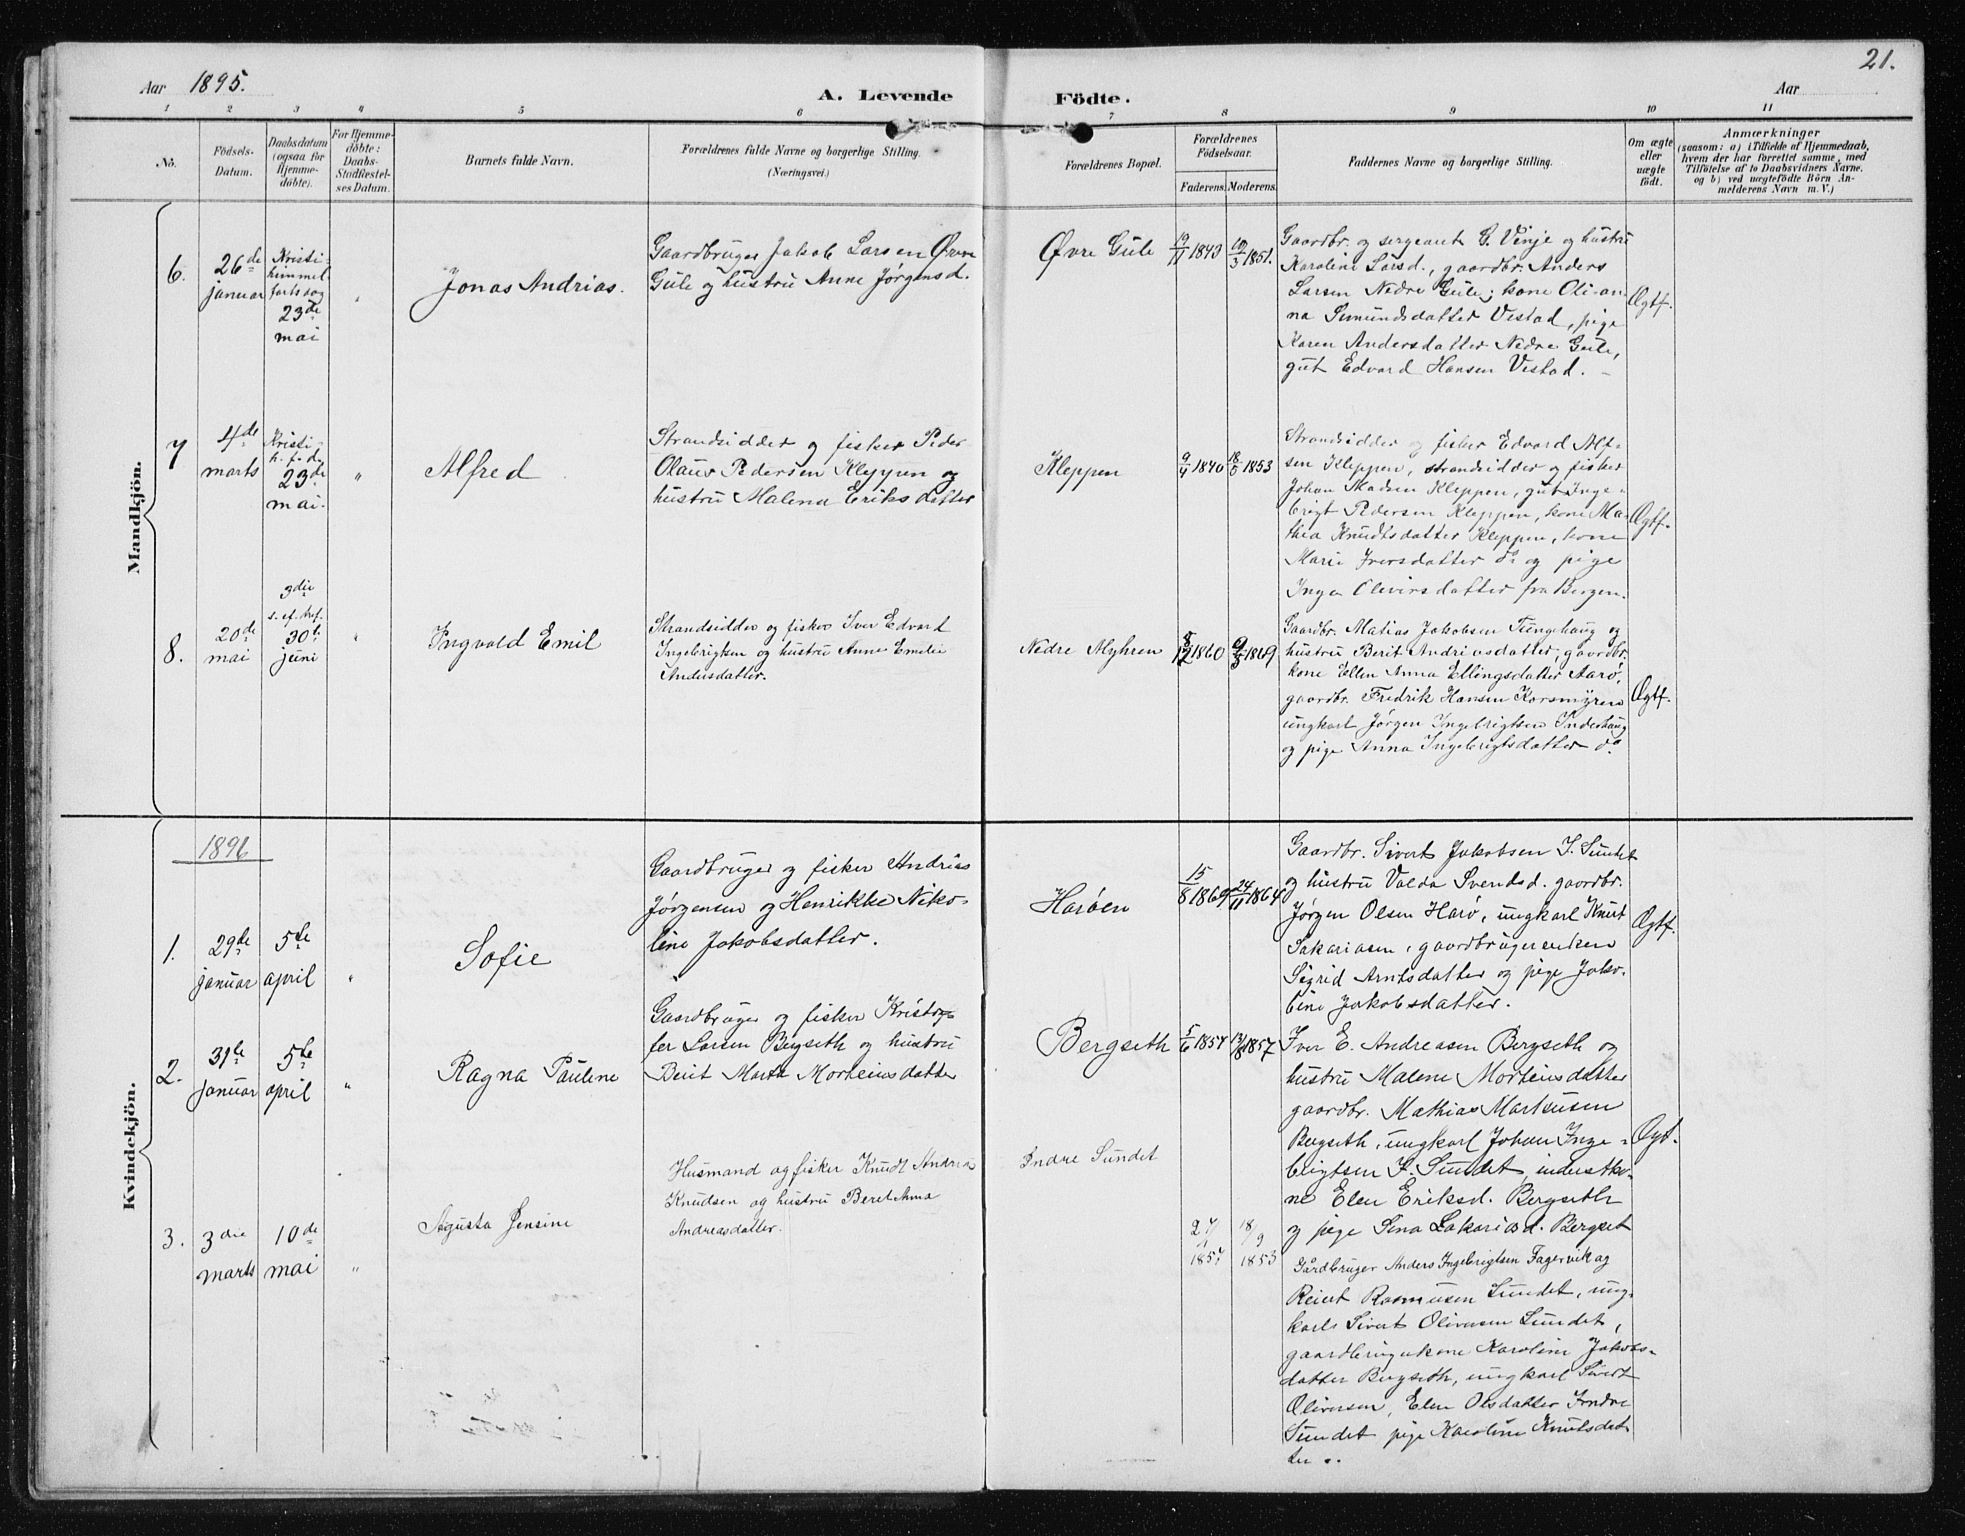 21.
Aar 1895.
A. Levende Födte.
Aar
1 2 3 4 5 6 7 8 9 10 11
No.
Födsels-
Datum.
Daabsdatum
(ogsaa for
Hjemme-
döbte).
For Hjemme-
döbte:
Daabs-
Stadfæstel-
ses Datum.
Barnets fulde Navn.
Forældrenes fulde Navne og borgerlige Stilling.
(Næringsvei.)
Forældrenes Bopæl.
Forældrenes
Födselsaar.
Faderens. Moderens.
Faddernes Navne og borgerlige Stilling.
Om ægte
eller
uægte
födt.
Anmærkninger
(saasom: a) i Tilfælde af Hjemmedaab,
hvem der har forrettet samme, med
Tilföielse af to Daabsvidners Navne,
og b) ved uægtefödte Börn An-
melderens Navn m. V.)
Mandkjön.
6.
26de
januar
Kristi
himmel
fartsdag
23de
mai
"
Jonas Andrias.
Gaardbruger Jakob Larsen Øvre
Gule og hustru Anne Jørgensd.
Øvre Gule
19/11 1843
10/3 1851.
Gaardbr. og sergeant G. Vinje og hustru
Karoline Larsd., gaardbr. Anders
Larsen Nedre Gule; kone Oli-an-
na Simundsdatter Vestad, pige
Karen Andersdatter Nedre Gule,
gut Edvard Hansen Vestad. –
Ægtf.
7
4de
marts
Kristi
h. f. d.
23de
mai.
"
Alfred
Strandsidder og fisker Peder
Olaus Pedersen Kleppen og
hustru Malena Eriksdatter
Kleppen
1840
1853
Strandsidder og fisker Edvard Alf-
sen Kleppen, strandsidder og fisker
Johan Madsen Kleppen, gut Inge-
brigt Pedersen Kleppen, kone Ma-
thea Knudtsdatter Kleppen, kone
Marie Iversdatter do og pige
Inga Oliversdatter fra Bergen.
Ægtf.
8.
20de
mai
3die
s. ef. tref.
30te
juni
"
Ingvald Emil
Strandsidder og fisker Iver Edvard
Ingebrigtsen og hustru Anne Emelie
Andersdatter.
Nedre Myhren
1860
1869
Gaardbr. Matias Jakobsen Tungehaug og
hustru Berit Andriasdatter, gaardbr.
kone Ellen Anna Ellingsdatter Aarø,
gaardbr. Fredrik Hansen Korsmyren
ungkarl Jørgen Ingebrigtsen Inderhaug
og pige Anna Ingebrigtsdatter do
Ægtf.
Kvindekjön.
1896
1.
29de
januar
5te
april
"
Sofie
Gaardbruger og fisker Andrias
Jørgensen og Henrikke Niko-
line Jakobsdatter.
Harøen
15/8 1864
24/11 1864
Gaardbr. Sivert Jakobsen I. Sundet
og hustru Valda Svendsd. gaardbr.
Jørgen Olsen Harø, ungkarl Knut
Sakariasen, gaardbrugerenken
Sigrid Arntsdatter og pige Jako-
bine Jakobsdatter.
Ægtf.
2.
31te
januar
5te
april
"
Ragna Pauline
Gaardbruger og fisker Kristof-
fer Larsen Bergseth og hustru
Berit Marta Morteinsdatter
Bergseth
5/6 1854
13/8 1857
Iver E. Andreasen Bergseth og
hustru Malene Morteinsdatter
gaardbr. Mathias Markusen
Bergseth, ungkarl Johan Inge-
brigtsen I. Sundet, inderstko-
ne Elen Eriksd. Bergseth
og pige Sina Sakariasd. Bergset
Ægt.
3.
3die
marts
10de
mai
"
Agusta Jensine
Husmand og fisker Knudt Andrias
Knudsen og hustru Beret Anna
Andreasdatter.
Indre Sundet
1857
18/9
1853
Gårdbruger Anders Ingebrigtsen Fagervik og
Reiert Rasmusen Sundet, ung-
karls Sivert Oliversen Sundet,
gaardbrugerkone Karoline Jakobs-
datter Bergseth, ungkarl Sivert
Oliversen, Elen Olsdatter Indre
Sundet pige Karoline Knutsdat-
ter.